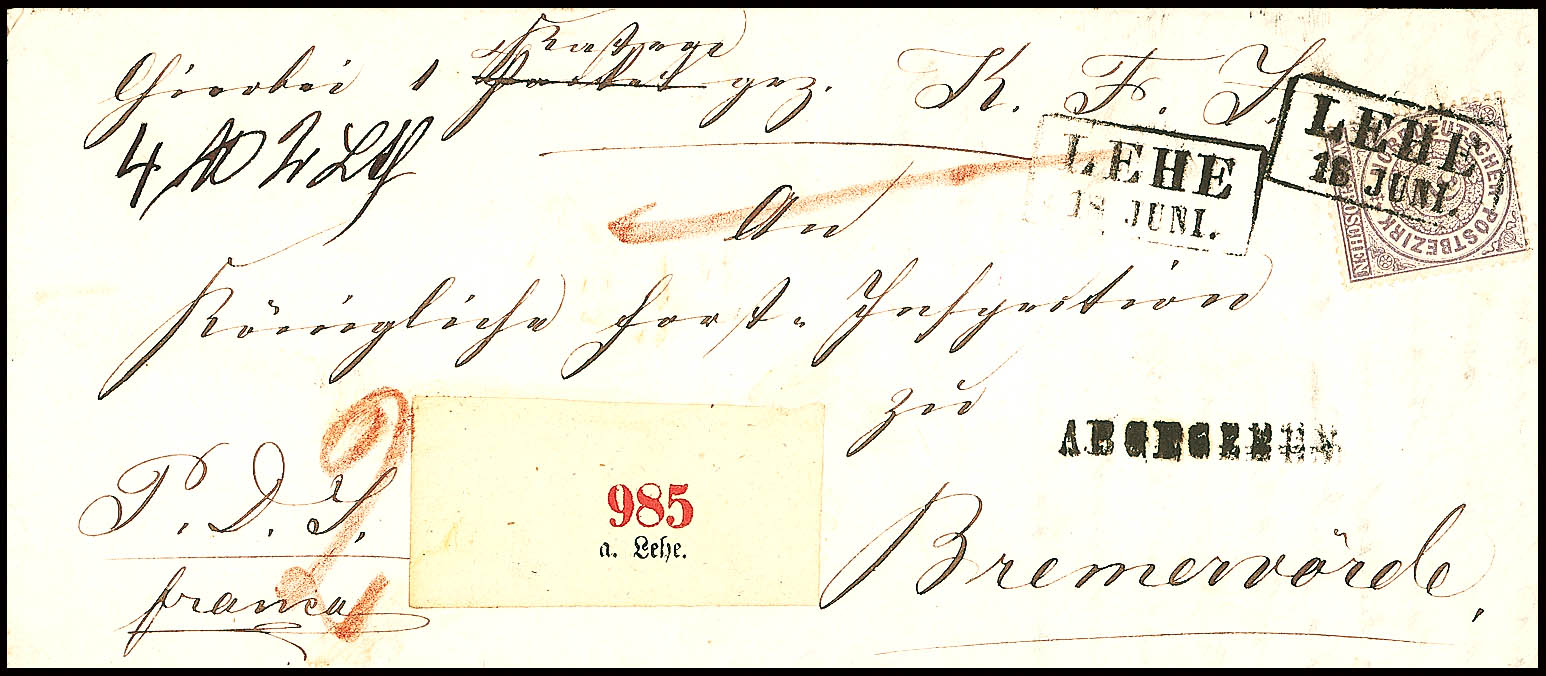 Hierbei 1 Packet gez. K. F. I.
4 ℔ 2 Lth
An
Königliche Forst-Inspection
zu
Bremervörde,
P. D. S.
franco
985
a. Lehe.
LEHE
18 JUNI.
LEHE
18 JUNI.
NORDDEUTSCHER POSTBEZIRK
ABGEGEBEN